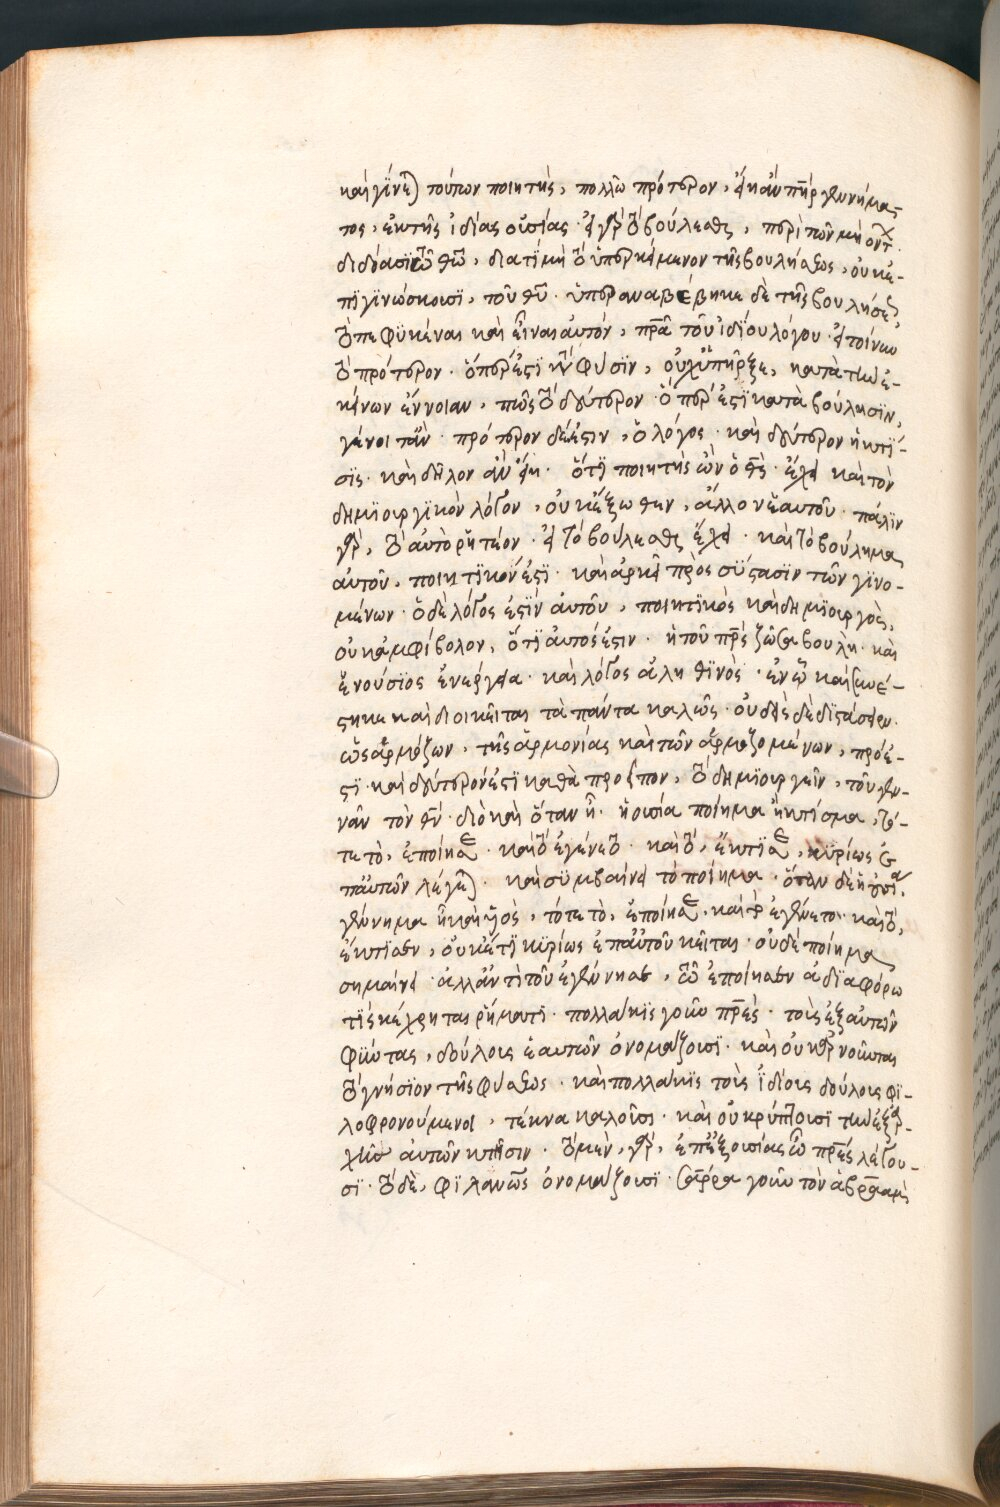 καὶ γίνεται τούτων ποιητὴς, πολλῶ πρότερον, εἴη ἂν πὴρ γεννήμα-
τος, ἐκ τῆς ἰδίας οὐσίας· εἰ γὰρ τὸ βούλεσθαι, περὶ τῶν μὴ ὄντ
διδόασι τῶ θῶ, διατί μὴ τὸ ὑπερκείμενον τῆς βουλήσεως, οὐκ ἐ-
πιγινώσκουσι, τοῦ θῦ· ὑπεραναβέβηκε δὲ τῆς βουλήσεως,
τὸ πεφυκέναι καὶ εἶναι αὐτὸν, πρα τοῦ ἰδίου λόγου· εἰ τοίνυν
τὸ πρότερον· ὅπερ ἐστὶ κατὰ φύσιν, οὐχ ὑπῆρξε, κατὰ τὴν ἐ-
κείνων ἔννοιαν, πῶς τὸ δεύτερον· ὅπερ ἐστὶ κατὰ βούλησιν,
γένοιτ᾽ ἄν· πρότερον δέ ἐστιν, ὁ λόγος· καὶ δεύτερον ἡ κτί-
σις· καὶ δῆλον ἂν εἴη· ὅτι ποιητὴς ὢν ὁ θς· ἔχει καὶ τὸν
δημιουργικὸν λόγον, οὐκ ἔξωθεν, ἀλλ᾽ ἐν ἑαυτοῦ· πάλιν
γὰρ, τὸ αὐτὸ ῥητέον· εἰ τὸ βούλεσθαι ἔχει· καὶ τὸ βούλημα
αὐτοῦ, ποιητικόν ἐστι· καὶ ἀρκεῖ πρὸς σύστασιν τῶν γινο-
μένων· ὁ δὲ λόγος ἐστὶν αὐτοῦ, ποιητικὸς καὶ δημιουργὸς,
οὐκ ἀμφίβολον, ὅτι αὐτός ἐστιν· ἡ τοῦ πρς ζῶσα βουλή· καὶ
ἐνούσιος ἐνέργεια· καὶ λόγος ἀληθινὸς· ἐν ᾧ καὶ συνέ-
στηκε καὶ διοικεῖται τὰ πάντα καλῶς· οὐδεὶς δὲ διστάσειεν·
ὡς ὁ ἁρμόζων, τῆς ἁρμονίας καὶ τῶν ἁρμοζομένων, πρόε-
στι· καὶ δεύτερόν ἐστι καθὰ προεῖπον, τὸ δημιουργεῖν, τοῦ γεν-
νᾶν τὸν θν· διὸ καὶ ὅταν ᾖ· ἡ οὐσία ποίημα ἢ κτίσμα, τό-
τε τὸ, ἐποίησε· καὶ τὸ ἐγένετο· καὶ τὸ, ἔκτισε, κυρίως ἐ
π᾽ αὐτῶν λέγεται· καὶ συμβαίνει τὸ ποίημα· ὅταν δὲ ἡ οὐσία
γέννημα ᾖ καὶ υἱὸς, τότε τὸ, ἐποίησε, καὶ τὸ ἐγένετο· καὶ τὸ,
ἔκτισεν, οὐκέτι κυρίως ἐπ᾽ αὐτοῦ κεῖται· οὐδὲ ποίημα
σημαίνει· ἀλλ᾽ ἀντὶ τοῦ ἐγέννησε, τῶ ἐποίησεν ἀδιαφόρω
τὶς κέχρηται ῥήματι· πολλάκις γοῦν πρες· τοὺς ἐξ αὐτῶν
φύντας, δούλους ἑαυτῶν ὀνομάζουσι· καὶ οὐκ ἀρνοῦνται
τὸ γνήσιον τῆς φύσεως· καὶ πολλάκις τοὺς ἰδίους δούλους φι-
λοφρονούμενοι, τέκνα καλοῦσι· καὶ οὐ κρύπτουσι τὴν ἐξ ἀρ-
χῆς αὐτῶν κτῆσιν· τὸ μὲν, γὰρ, ἐπ᾽ ἐξουσίας ὡς πρες λέγου-
σι· τὸ δὲ, φιλανως ὀνομάζουσι· σάρρα γοῦν τὸν ἀβραὰμ